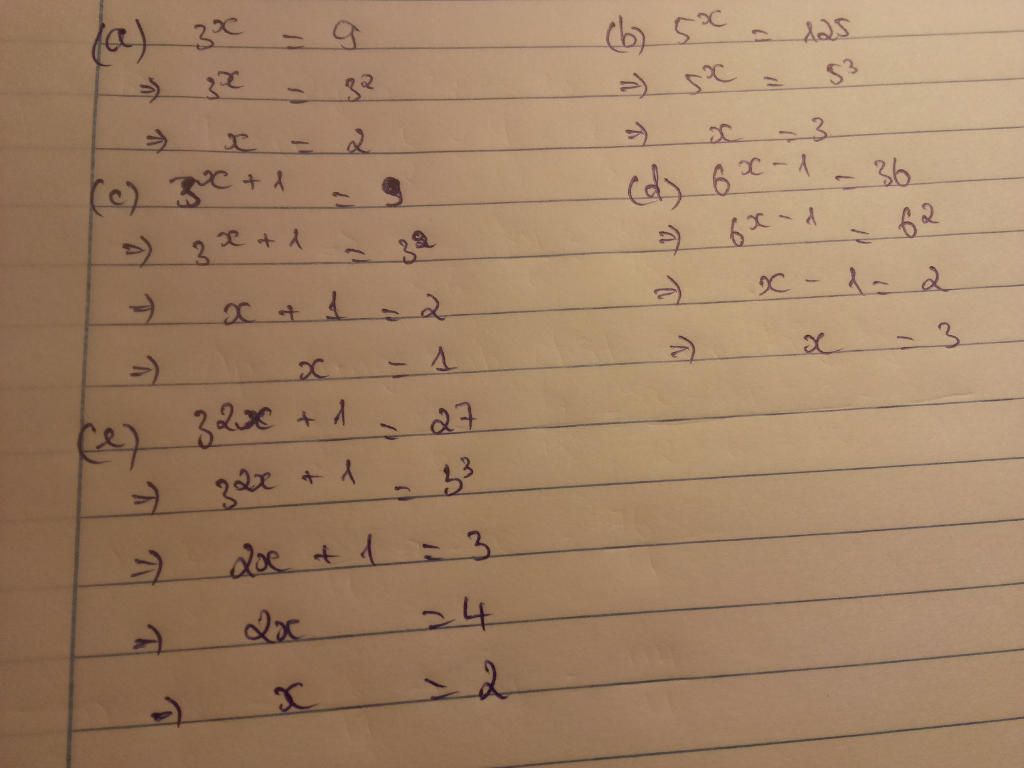 (a) 3^x = 9
⇒ 3^x = 3^2
⇒ x = 2
(b) 5^x = 125
⇒ 5^x = 5^3
⇒ x = 3
(c) 3^x + 1 = 9
⇒ 3^x + 1 = 3^2
⇒ x + 1 = 2
⇒ x = 1
(d) 6^x - 1 = 36
⇒ 6^x - 1 = 6^2
⇒ x - 1 = 2
⇒ x = 3
(e) 3^2x + 1 = 27
⇒ 3^2x + 1 = 3^3
⇒ 2x + 1 = 3
⇒ 2x = 4
⇒ x = 2